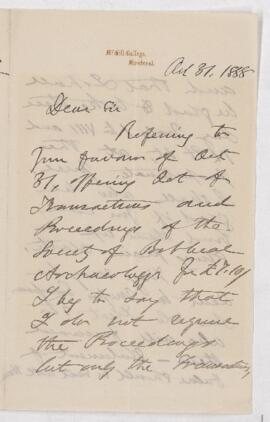 McGill College,
Montreal.
Oct 31, 1888
Dear Sir
Referring to
your favour of Oct
31, offering Set of
Transactions and
Proceedings of the
Society of Biblical
Archaeology for £7.10/
I beg to say that
I do not require
the Proceedings
but only the Transactions